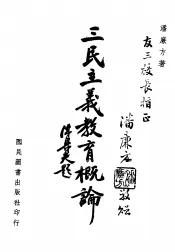 潘廉方著
友三校長指正
潘廉方敬贈
三民主義教育概論
陳立夫題
國民圖書出版社印行